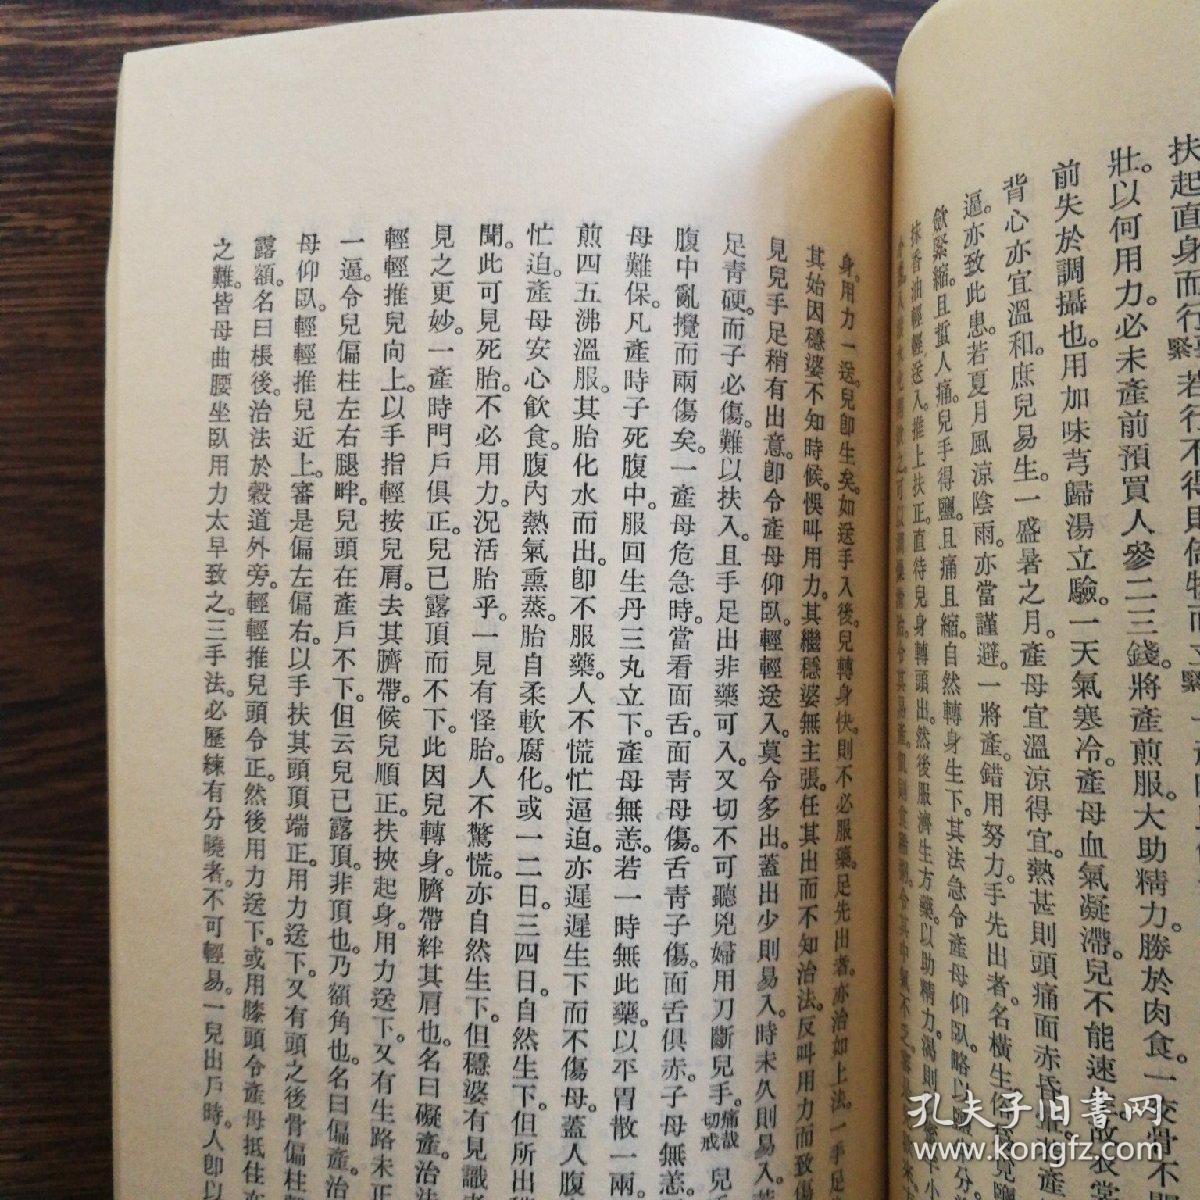 扶起直身而行
壯。以何用力。必未產前預買人參二三錢。將產煎服。大助精力。勝於肉食。一交骨不
前失於調攝也。用加味芎歸湯立驗。一天氣寒冷。產母血氣凝滯。兒不能速
背心亦宜溫和。庶兒易生。一盛暑之月。產母宜溫涼得宜。熱甚則頭痛面赤昏
逼。亦致此患。若夏月風涼陰雨。亦當謹避。一將產。錯用努力。手先出者。名橫生。
斂緊縮。且蜇人痛。兒手得鹽。且痛且縮。自然轉身生下。其法急令產母仰臥。略以
抹香油輕輕送入。推上扶正。直待兒身轉頭出。然後服濟生方藥。以助精力。渴則
身。用力一送。兒卽生矣。如送手入後。兒轉身快。則不必服藥。足先出者。亦治如上法。一手足
其始因穩婆不知時候。悞叫用力。其繼穩婆無主張。任其出而不知治法。反叫用力而致傷
見兒手足稍有出意。卽令產母仰臥。輕輕送入。莫令多出。蓋出少則易入。時未久則易入。
足青硬。而子必傷。難以扶入。且手足出非藥可入。又切不可聽兇婦用刀斷兒手。痛哉切戒兒
腹中亂攪而兩傷矣。一產母危急時。當看面舌。面青母傷。舌青子傷。面舌俱赤。子母無恙。
母難保。凡產時子死腹中。服回生丹三丸立下。產母無恙。若一時無此藥。以平胃散一兩。
煎四五沸溫服。其胎化水而出。卽不服藥。人不慌忙逼迫。亦遲遲生下而不傷母。蓋人腹
忙迫。產母安心飲食。腹內熱氣熏蒸。胎自柔軟腐化。或一二日。三四日。自然生下。但所出
聞。此可見死胎。不必用力。況活胎乎。一見有怪胎。人不驚慌。亦自然生下。但穩婆有見識
見之更妙。一產時門戶俱正。兒已露頂而不下。此因兒轉身。臍帶絆其肩也。名曰礙產。治法
輕輕推兒向上。以手指輕按兒肩。去其臍帶。候兒順正。扶挾起身。用力送下。又有生路未正
一逼。令兒偏柱左右腿畔。兒頭在產戶不下。但云兒已露頂。非頂也。乃額角也。名曰偏產。治
母仰臥。輕輕推兒近上。審是偏左偏右。以手扶其頭頂端正。用力送下。又有頭之後骨偏柱
露額。名曰棖後。治法於穀道外旁。輕輕推兒頭令正。然後用力送下。或用膝頭令產母抵住
之難。皆母曲腰坐臥用力太早致之。三手法。必歷練有分曉者。不可輕易。一兒出戶時。人卽以
孔夫子旧书网
www.kongfz.com